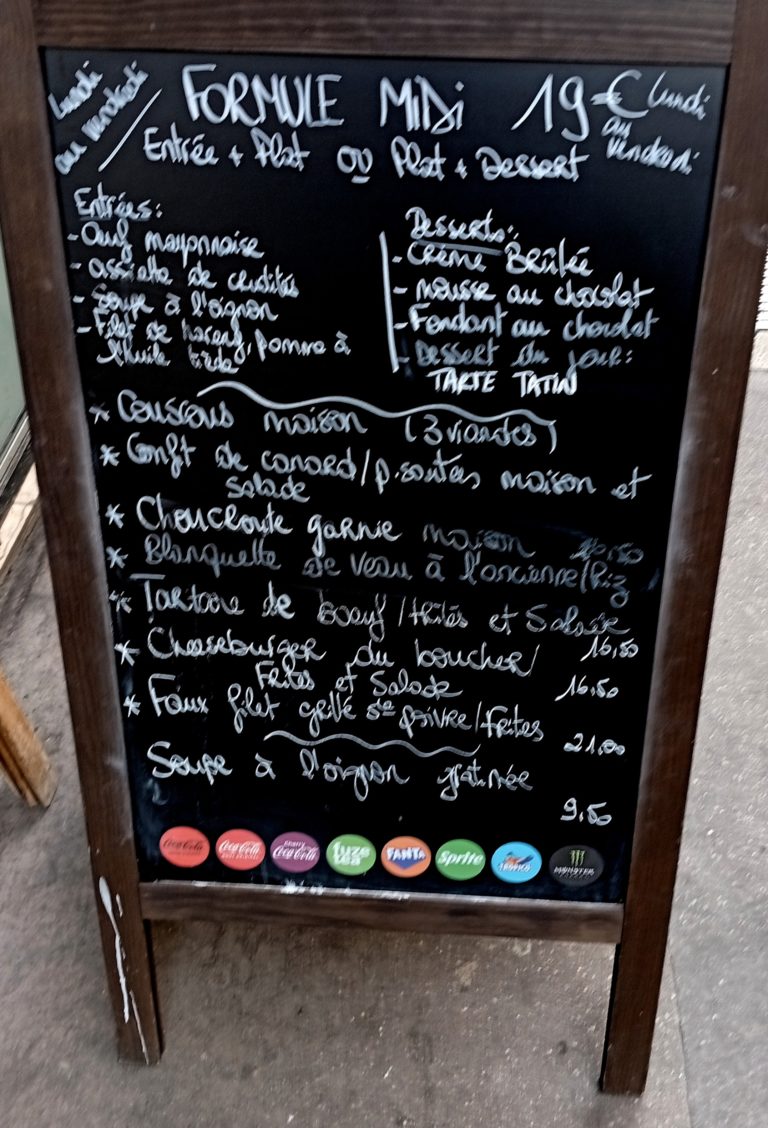 Lundi
au vendredi
FORMULE MiDi 19 € Lundi
au
vendredi
Entrée + Plat ou Plat + Dessert
Entrées:
- Œuf mayonnaise
- assiette de crudités
- Soupe à l'oignon
- Filet de hareng, pomme à
l'huile tiède
Desserts:
- Crème Brûlée
- mousse au chocolat
- Fondant au chocolat
- Dessert du jour:
TARTE TATIN
* Couscous maison (3 viandes)
* Confit de canard/p.sautées maison et
Salade
* Choucroute garnie maison
* Blanquette de veau à l'ancienne/Riz
* Tartare de boeuf/frites et Salade
16,50
* Cheeseburger du boucher/
Frites et Salade
16,50
* Faux filet grillé sce poivre/frites
21,00
Soupe à l'oignon gratinée
9,50
Coca-Cola
Coca-Cola
Cherry
Coca-Cola
fuze
tea
FANTA
Sprite
TROPICO
MONSTER